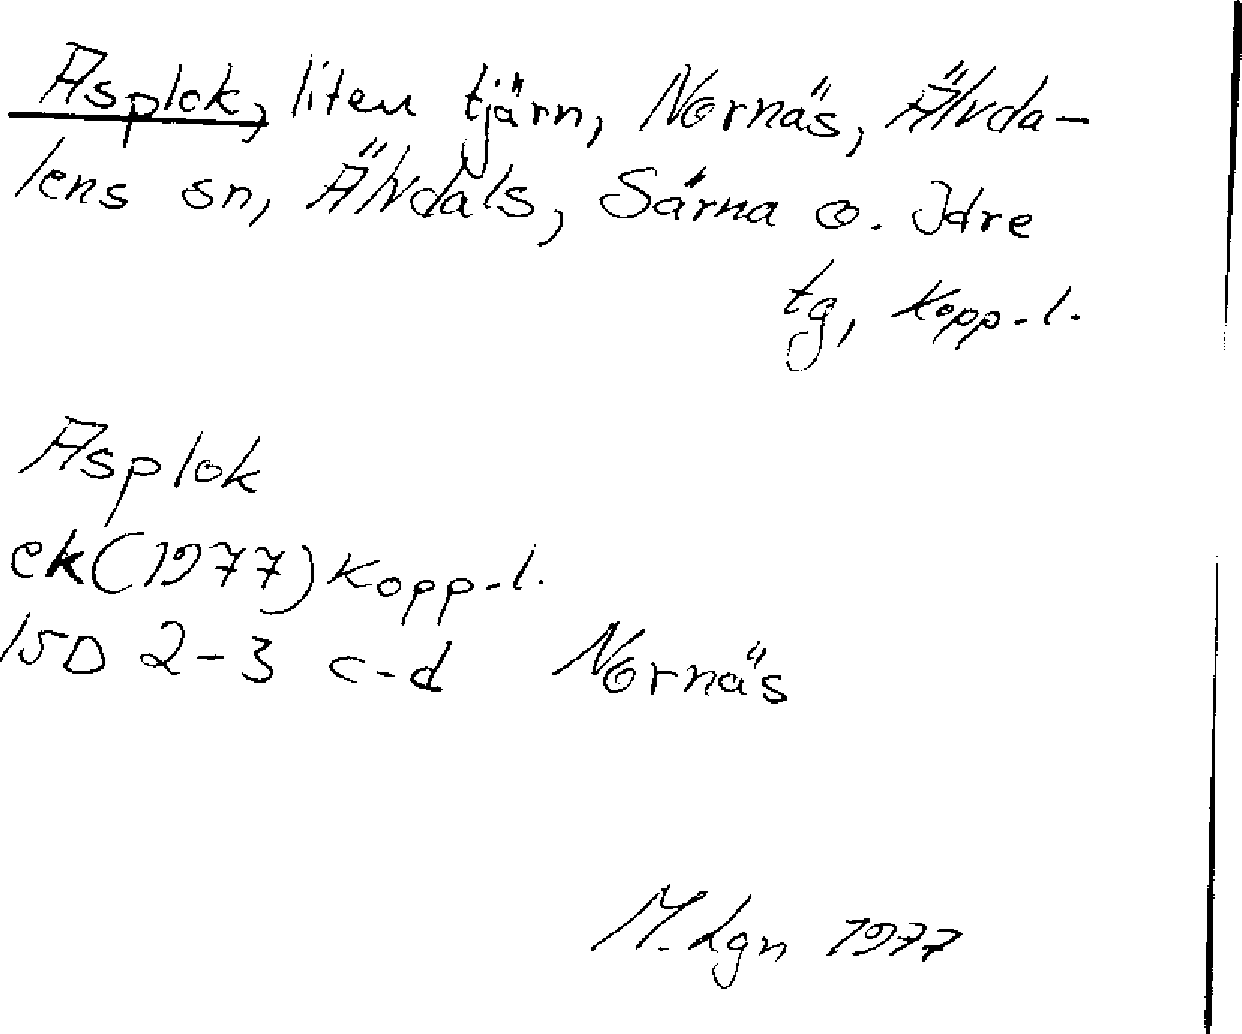 Asplok, liten tjärn, Nornäs, Älvda-
lens sn, Älvdals, Särna o. Idre
tg, Kopp.l.
Asplok
ek(1977)Kopp.l.
15D 2-3 c-d Nornäs
M. Lgn 1977